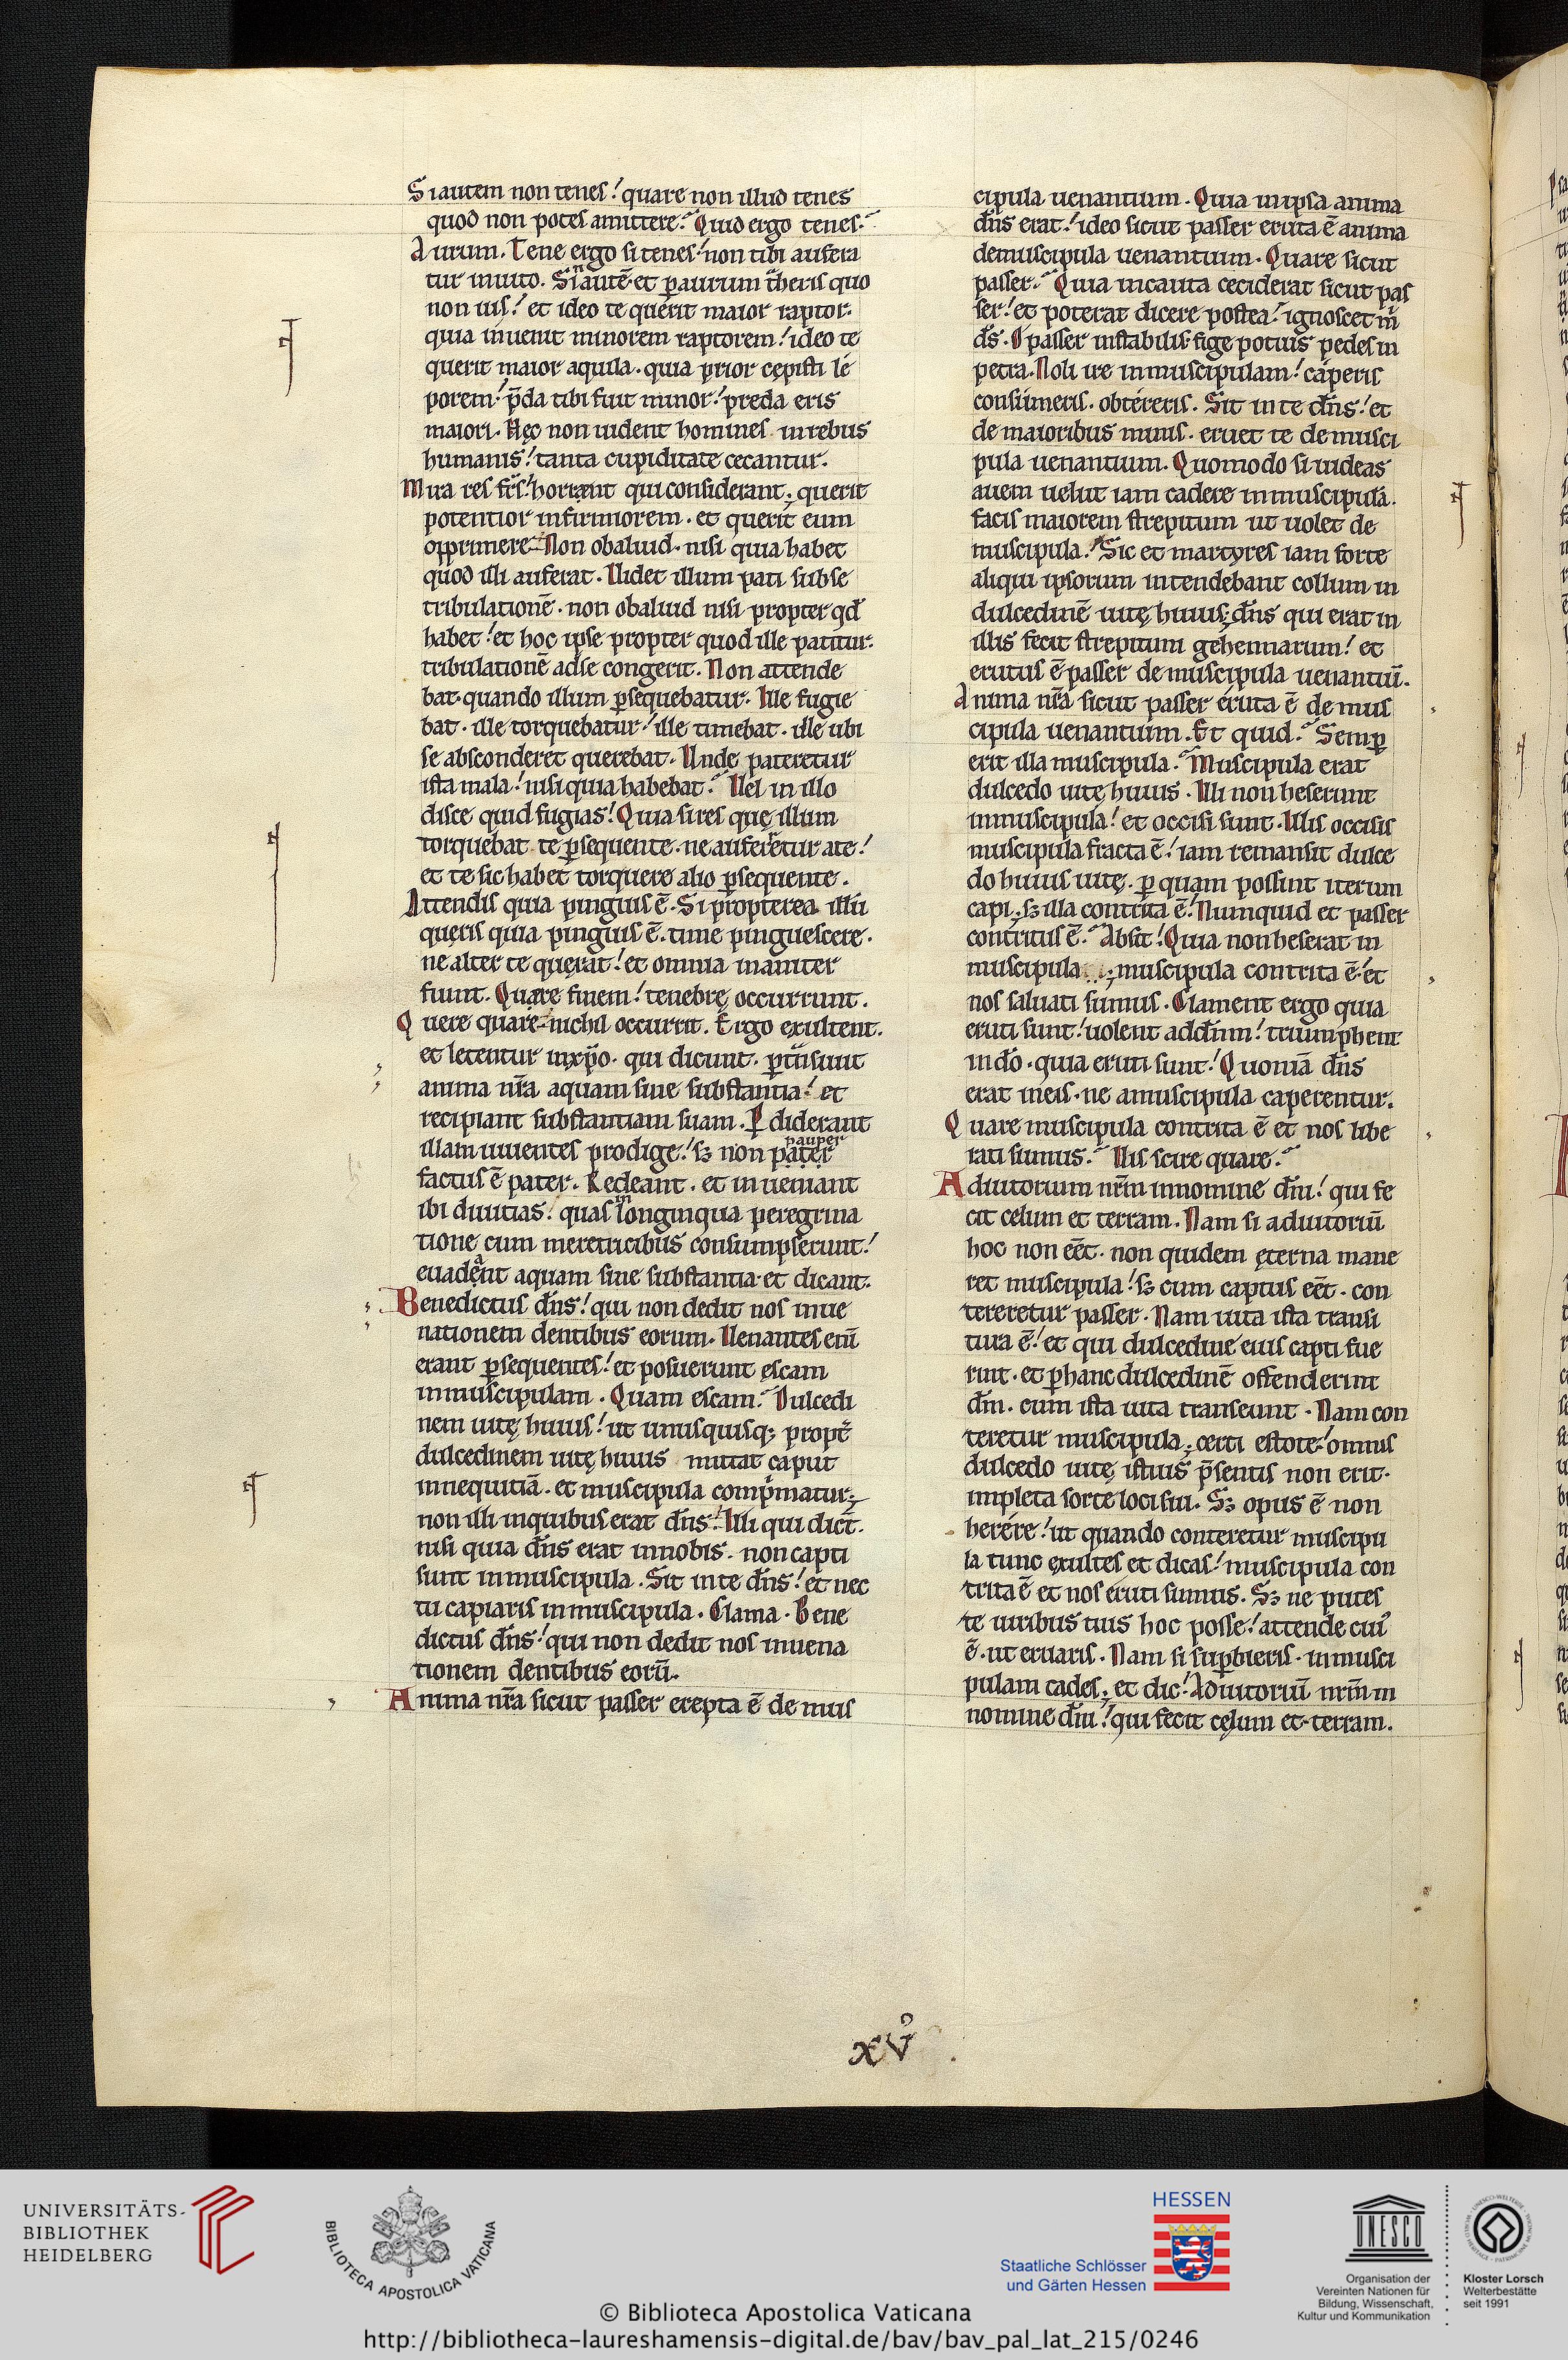 Siautem non tenes! quare non illud tenes
quod non potes amittere? Quid ergo tenes?
Aurum. Tene ergo si tenes! non tibi aufera
tur inuito. Si n autē et p̲aurum t̄heris quo
non uis! et ideo te querit maior raptor.
quia inuenit minorem raptorem! ideo te
querit maior aquila. quia prior cepisti le
porem! p̄da tibi fuit minor! preda eris
maiori. Hec non uident homines inrebus
humanis! tanta cupiditate cecantur.
Mira res fr̄s! horreant qui considerant. querit
potentior infirmiorem. et querit eum
opprimere. Non obaliud. nisi quia habet
quod illi auferat. Uidet illum pati subse
tribulationē. non obaliud nisi propter qd̄
habet! et hoc ipse propter quod ille patitur.
tribulationē adse congerit. Non attende
bat. quando illum p̲sequebatur. Ille fugie
bat. ille torquebatur! ille timebat. ille ubi
se absconderet querebat. Unde pateretur
ista mala! nisi quia habebat? Uel in illo
disce quid fugias! Quia si res quę illum
torquebat te p̲sequente. ne auferretur ate!
et te sic habet torquere alio p̲sequente.
Attendis quia pinguis ē. Si propterea illū
queris quia pinguis ē. time pinguescere.
ne alter te querat! et omnia inaniter
fiunt. Quare finem! tenebrę occurrunt.
Quere quare. nichil occurrit. Ergo exultent.
et letentur inxp̄o. qui dicunt. p̲t̄nsiuit
anima nr̄a aquam sine substantia! et
recipiant substantiam suam. P̲diderant
illam uiuentes prodige! sꝫ non pater
pauper
factus ē pater. Redeant. et inueniant
ibi diuitias! quas in longinqua peregrina
tione cum meretricibus consumpserunt!
euadent aquam sine substantia et dicant.
Benedictus dn̄s! qui non dedit nos inue
nationem dentibus eorum. Uenantes enī
erant p̲sequentes! et posuerunt escam
inmuscipulam. Quam escam? Dulcedi
nem uitę huius! ut unusquisqꝫ propt̄
dulcedinem uitę huius mittat caput
innequitiā. et muscipula comp̄matur;
non illi inquibus erat dn̄s. Illi qui dict̄.
nisi quia dn̄s erat innobis. non capti
sunt inmuscipula. Sit inte dn̄s! et nec
tu capiaris inmuscipula. Clama. Bene
dictus dn̄s! qui non dedit nos inuena
tionem dentibus eorū.
Anima nr̄a sicut passer erepta ē de mus
cipula uenantium. Quia inipsa anima
dn̄s erat! ideo sicut passer eruta ē anima
demuscipula uenantium. Quare sicut
passer? Quia incauta ceciderat sicut pas
ser! et poterat dicere postea! ignoscet m̄
ds̄. O passer instabilis! fige potius pedes in
petra. Noli ire inmuscipulam! caperis
consumeris. obtereris. Sit inte dn̄s! et
de maioribus minis. eruet te demusci
pula uenantium. Quomodo si uideas
auem uelut iam cadere inmuscipulā.
facis maiorem strepitum ut uolet de
muscipula! Sic et martyres iam forte
aliqui ipsorum intendebant collum in
dulcedinē uitę huius; dn̄s qui erat in
illis fecit strepitum gehennarum! et
erutus ē passer de muscipula uenantiū.
Anima nr̄a sicut passer eruta ē de mus
cipula uenantium. Et quid? Semp̲
erit illa muscipula? Muscipula erat
dulcedo uitę huius. Illi non heserunt
inmuscipula! et occisi sunt. Illis occisis
muscipula fracta ē! iam remansit dulce
do huius uitę. p̲ quam possint iterum
capi. sꝫ illa contrita ē! Numquid et passer
contritus ē? Absit! Quia non heserat in
muscipula; muscipula contrita ē! et
nos saluati sumus. Clament ergo quia
eruti sunt! uolent addn̄m! triumphent
indo̅. quia eruti sunt! Quoniā dn̄s
erat ineis. ne amuscipula caperentur.
Quare muscipula contrita ē et nos libe
rati sumus? Uis scire quare?
Adiutorium nr̄m innomine dn̄i! qui fe
cit celum et terram. Nam si adiutoriū
hoc non eēt. non quidem ęterna mane
ret muscipula! sꝫ cum captus eēt. con
tereretur passer. Nam uita ista transi
tura ē! et qui dulcedine eius capti fue
rint. et p̲hanc dulcedinē offenderint
dm̄. cum ista uita transeunt. Nam con
teretur muscipula. certi estote! omnis
dulcedo uitę istius p̄sentis non erit.
impleta sorte loci sui. Sꝫ opus ē non
herere! ut quando conteretur muscipu
la tunc exultes et dicas! muscipula con
trita ē et nos eruti sumus. Sꝫ ne putes
te uiribus tuis hoc posse! attende cui᾿
ē. ut eruaris. Nam si sup̲bieris. inmusci
pulam cades. et dic! Adiutoriū nrm̄ in
nomine dn̄i! qui fecit cęlum et terram.
xv
UNIVERSITÄTS-
BIBLIOTHEK
HEIDELBERG
BIBLIOTECA APOSTOLICA VATICANA
HESSEN
Staatliche Schlösser
und Gärten Hessen
UNESCO
Organisation der
Vereinten Nationen für
Bildung, Wissenschaft,
Kultur und Kommunikation
Kloster Lorsch
Welterbestätte
seit 1991
© Biblioteca Apostolica Vaticana
http://bibliotheca-laureshamensis-digital.de/bav/bav_pal_lat_215/0246